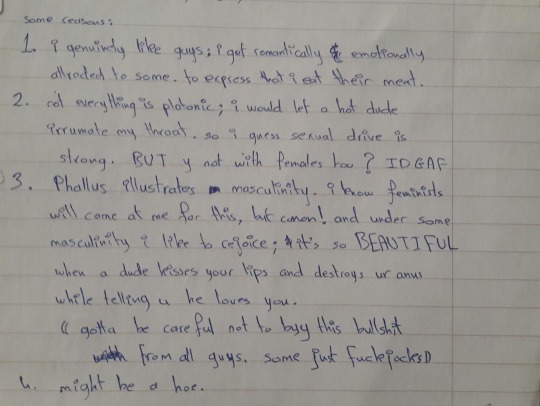 some reasons:
1. i genuinely like guys; i get romantically & emotionally
attracted to some. to express that i eat their meat.
2. not everything is platonic; i would let a hot dude
irrumate my throat. so i guess sexual drive is
strong. BUT y not with females too? IDGAF
3. Phallus illustrates masculinity. i know feminists
will come at me for this, but c'mon! and under some
masculinity i like to rejoice; it's so BEAUTIFUL
when a dude kisses your lips and destroys ur anus
while telling u he loves you.
(( gotta be careful not to buy this bullshit
from all guys. some just fuckejacks))
4. might be a hoe.